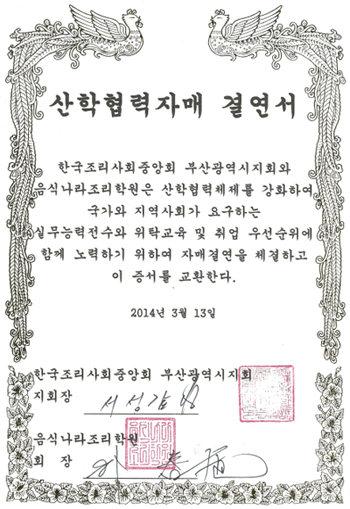 산학협력자매 결연서
한국조리사회중앙회 부산광역시지회와
음식나라조리학원은 산학협력체제를 강화하여
국가와 지역사회가 요구하는
실무능력전수와 위탁교육 및 취업 우선순위에
함께 노력하기 위하여 자매결연을 체결하고
이 증서를 교환한다.
2014년 3월 13일
한국조리사회중앙회 부산광역시지회
지회장
음식나라조리학원
회 장